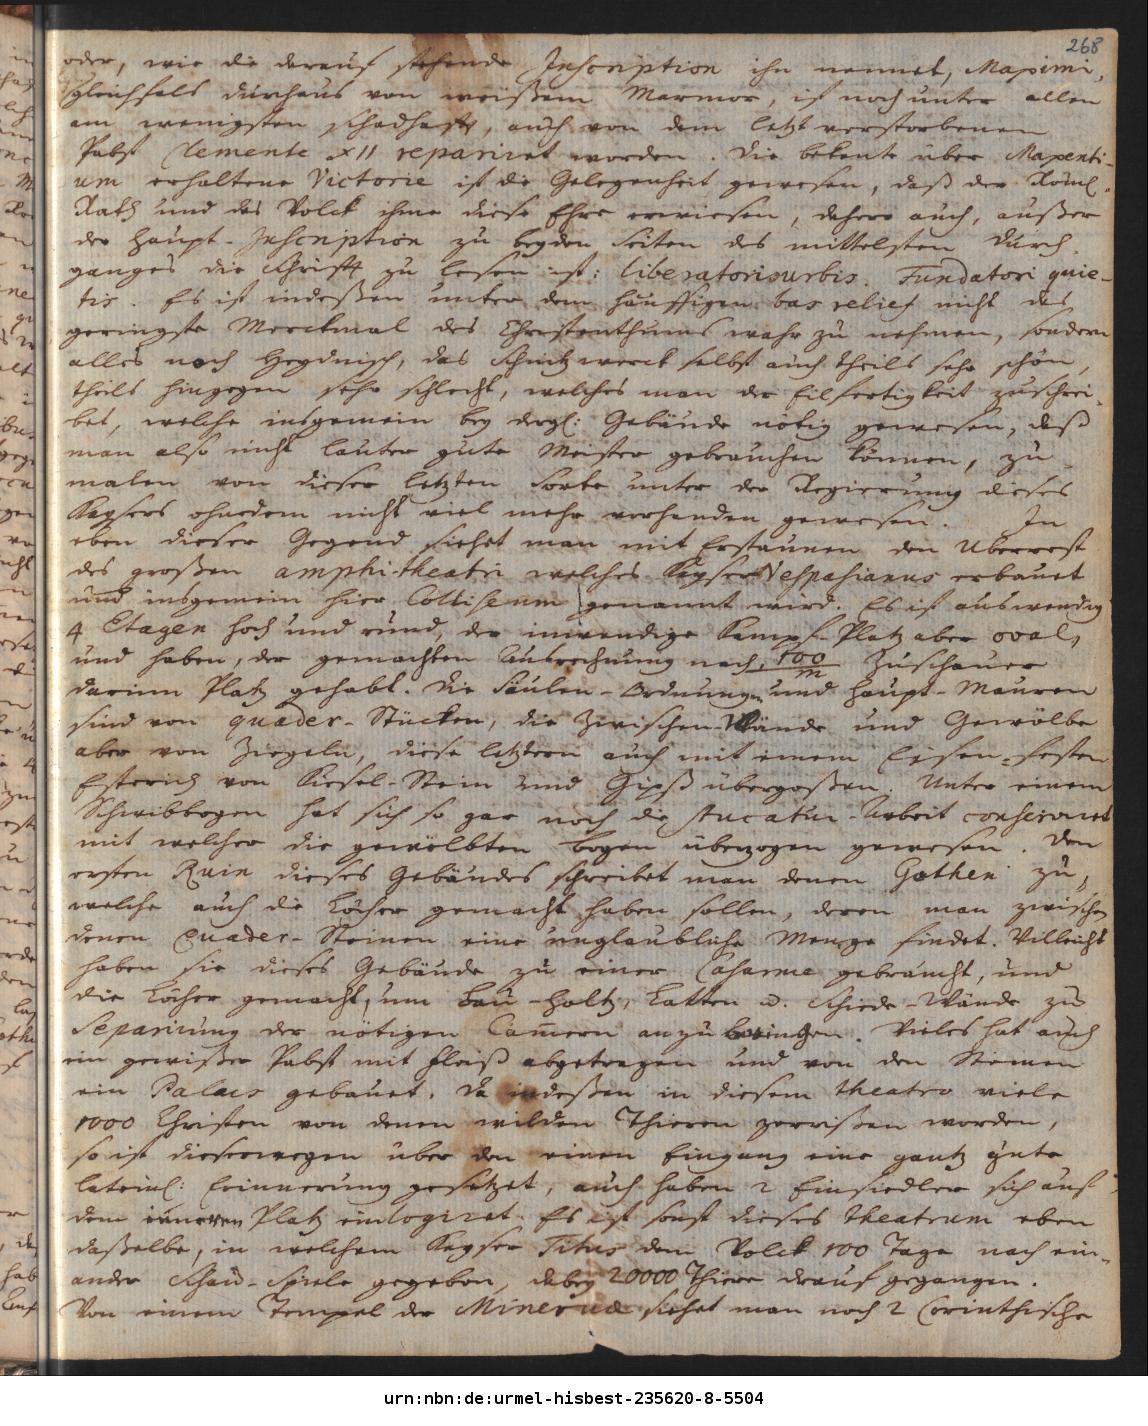 268
oder, wie die derauf stehende Inscription ihn nennet, Maximi,
gleichfals durchaus von weißem Marmor, ist noch unter allen
am wenigsten schadhafft, auch von dem letzt verstorbenen
Pabst Clemente XII repariret worden. Die bekante über Maxenti-
um erhaltene Victorie ist die Gelegenheit gewesen, daß der Röml.
Rath und das Volck ihme diese Ehre erwiesen, dahero auch, außer
der Haupt-Inscription zu beyden Seiten des mittelsten Durch
ganges die Schrifft zu lesen ist: liberatori urbis. Fundatori quie-
tis. Es ist indeßen unter dem häuffigen bas relief nicht das
geringste Merckmal des Christenthums wahr zu nehmen, sondern
alles noch Heydnisch, das Schnitzwerck selbst auch theils sehr schön,
theils hingegen sehr schlecht, welches man der Eilfertigkeit zuschrei-
bet, welche insgemein bey dergl: Gebäude nötig gewesen, daß
man also nicht lauter gute Meister gebrauchen können, zu
malen von dieser letzten Sorte unter der Regierung dieses
Kaysers ohnedem nicht viel mehr verhanden gewesen. In
eben dieser Gegend siehet man mit Erstaunen den Uberrest
des großen amphitheatri welches Kayser Vespasianus erbauet
und insgemein hier Colliseum genannt wird. Es ist auswendig
4 Etagen hoch und rund, der inwendige Kampf-Platz aber oval,
und haben, der gemachten Ausrechnung nach, 100/m Zuschauer
darinn Platz gehabt. Die Säulen-Ordnungen und Haupt-Mauren
sind von quader-Stücken, die Zwischen-Wände und Gewölbe
aber von Ziegeln, diese letztern auch mit einem Eisen-festen
Esterich von Kiesel-Stein und Gipß übergoßen. Unter einem
Schwibbogen hat sich so gar noch die Stucatur-Arbeit conserviret
mit welcher die gewölbten bogen überzogen gewesen. Den
ersten Ruin dieses Gebäudes schreibet man denen Gothen zu,
welche auch die Löcher gemacht haben sollen, deren man zwischen
denen Quader-Steinen eine unglaubliche Menge findet. Villeicht
haben sie dieses Gebäude zu einer Casarme gebraucht, und
die Löcher gemacht, um Bau-Holtz, Latten u. Schiede-Wände zu
Separirung der nötigen Cam̄ern anzubringen. Vieles hat auch
ein gewißer Pabst mit Fleiß abgetragen und von den Steinen
ein Palais gebauet. Da indeßen in diesem theatro viele
1000 Christen von denen wilden Thieren zerrißen worden,
so ist dieserwegen über den einen Eingang eine gantz gute
lateinl: Erinnerung gesetzet, auch haben 2 Einsiedler sich auf
dem inneren Platz einlogiret. Es ist sonst dieses theatrum eben
daßelbe, in welchem Kayser Titus dem Volck 100 Tage nach ein-
ander Schau-Spiele gegeben, dabey 20000 Thiere drauf gegangen.
Von einem Tempel der Minervae siehet man noch 2 Corinthische
urn:nbn:de:urmel-hisbest-235620-8-5504